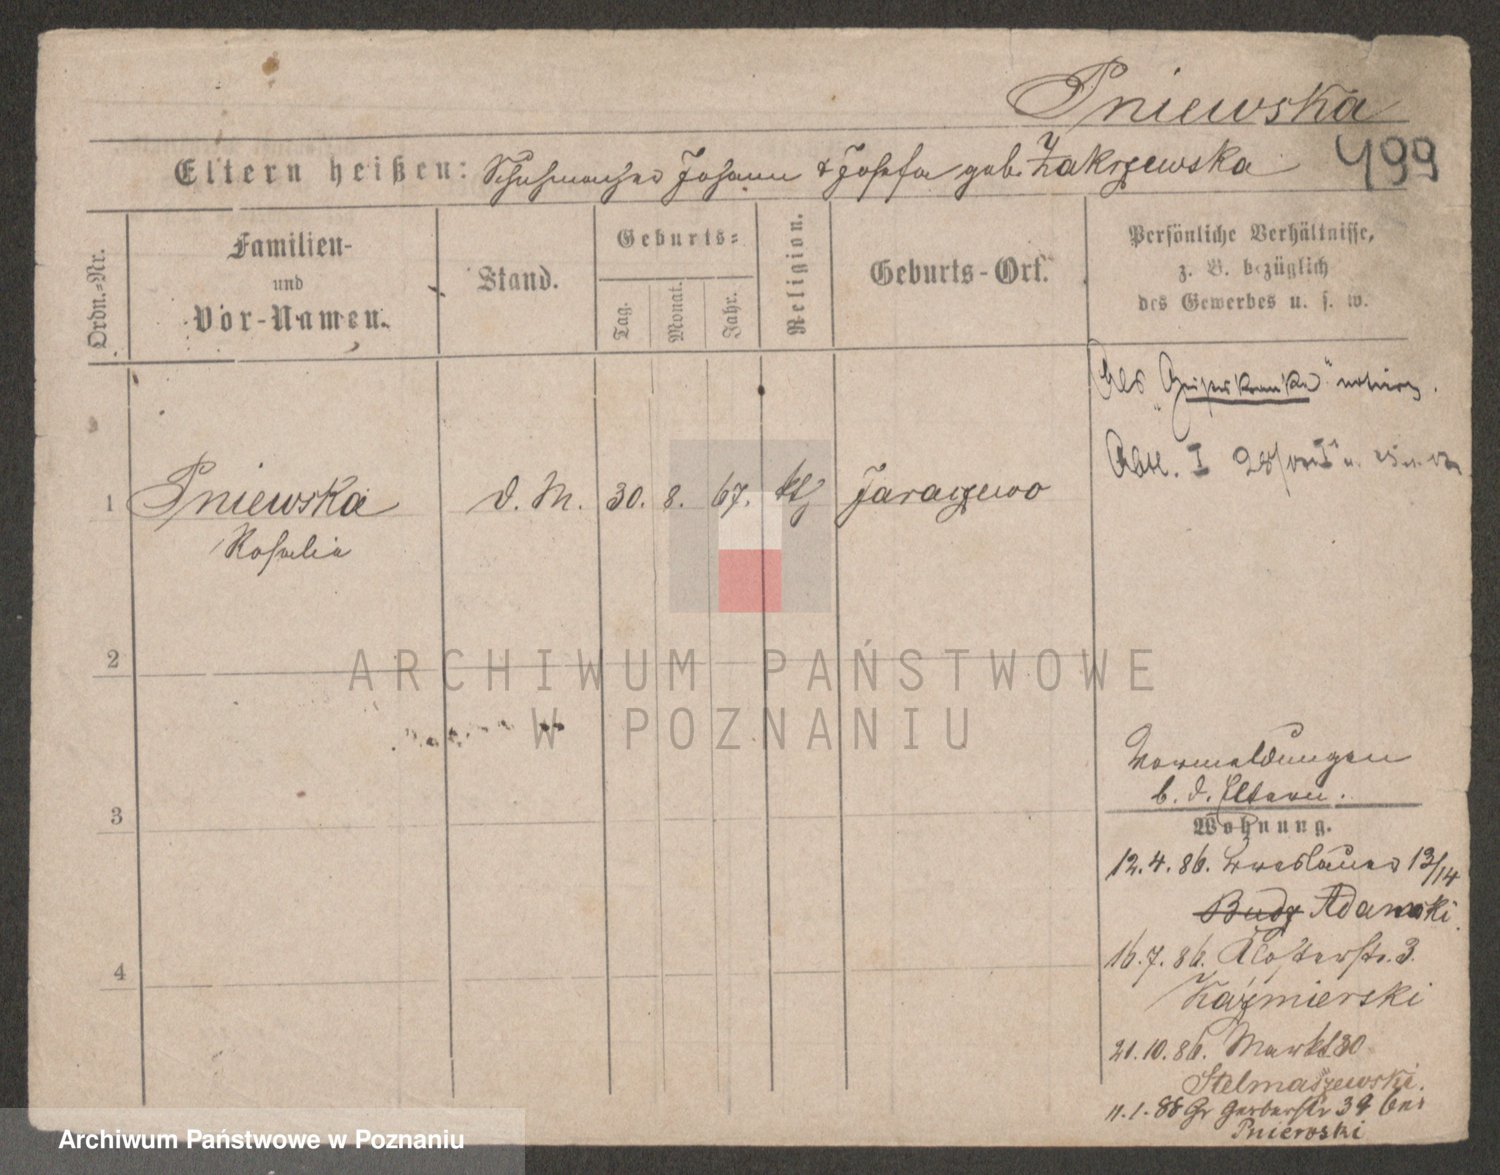 Pniewska
499
Eltern heißen: Schuhmacher Johann & Josefa geb. Zakrzewska
Ordn.-Nr.
Familien-
und
Vor-Namen.
Stand.
Geburts-
Tag.
Monat.
Jahr.
Religion.
Geburts-Ort.
Persönliche Verhältnisse,
z. B. bezüglich
des Gewerbes u. s. w.
Als "Geisteskranke" notiert.
Abtl. I
1 Pniewska d. M. 30. 8. 67. kth Jaraczewo
Rosalie
2
ARCHIWUM PAŃSTWOWE
W POZNANIU
3
4
Vormeldungen
b. d. Eltern.
Wohnung.
12.4.86. Breslauer 13/14
Budz Adamski.
16.7.86. Klosterstr. 3.
Kaźmierski
21.10.86. Markt 30
Stelmaszewski.
11.1.88 Gr Gerberstr 39 bei
Pniewski
Archiwum Państwowe w Poznaniu